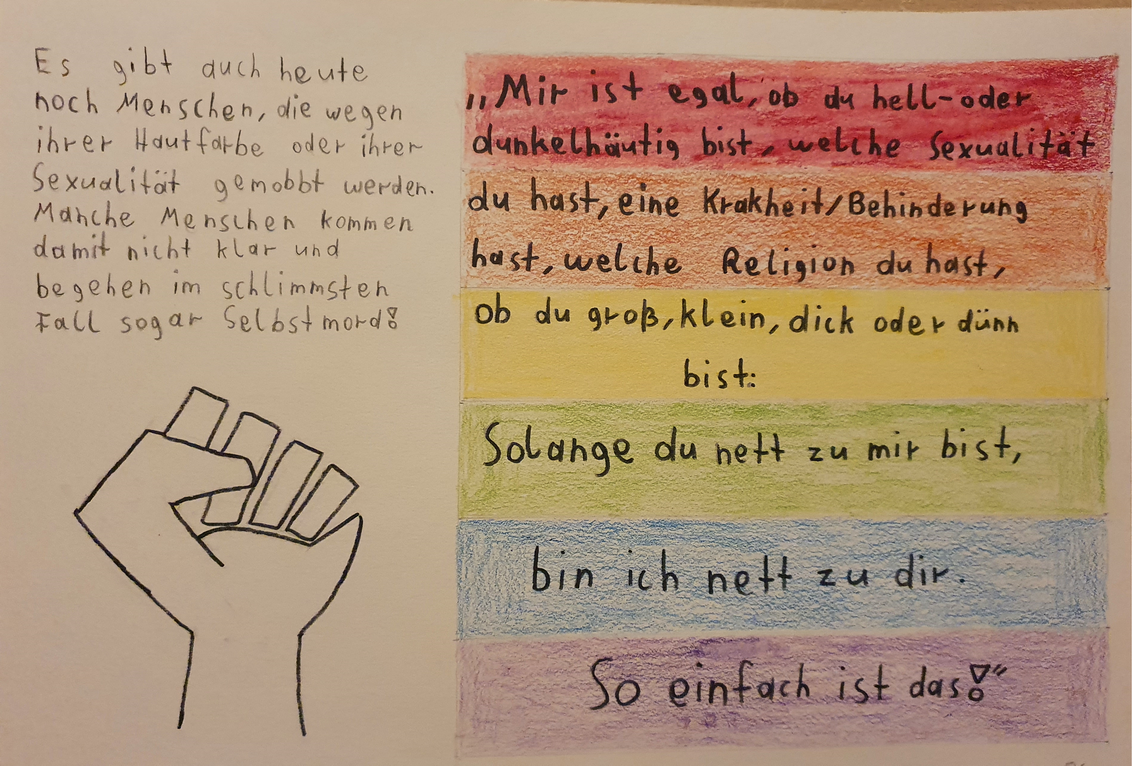 Es gibt auch heute
noch Menschen, die wegen
ihrer Hautfarbe oder ihrer
Sexualität gemobbt werden.
Manche Menschen kommen
damit nicht klar und
begehen im schlimmsten
Fall sogar Selbstmord!
„Mir ist egal, ob du hell- oder
dunkelhäutig bist, welche Sexualität
du hast, eine Krakheit/Behinderung
hast, welche Religion du hast,
ob du groß, klein, dick oder dünn
bist:
Solange du nett zu mir bist,
bin ich nett zu dir.
So einfach ist das!"